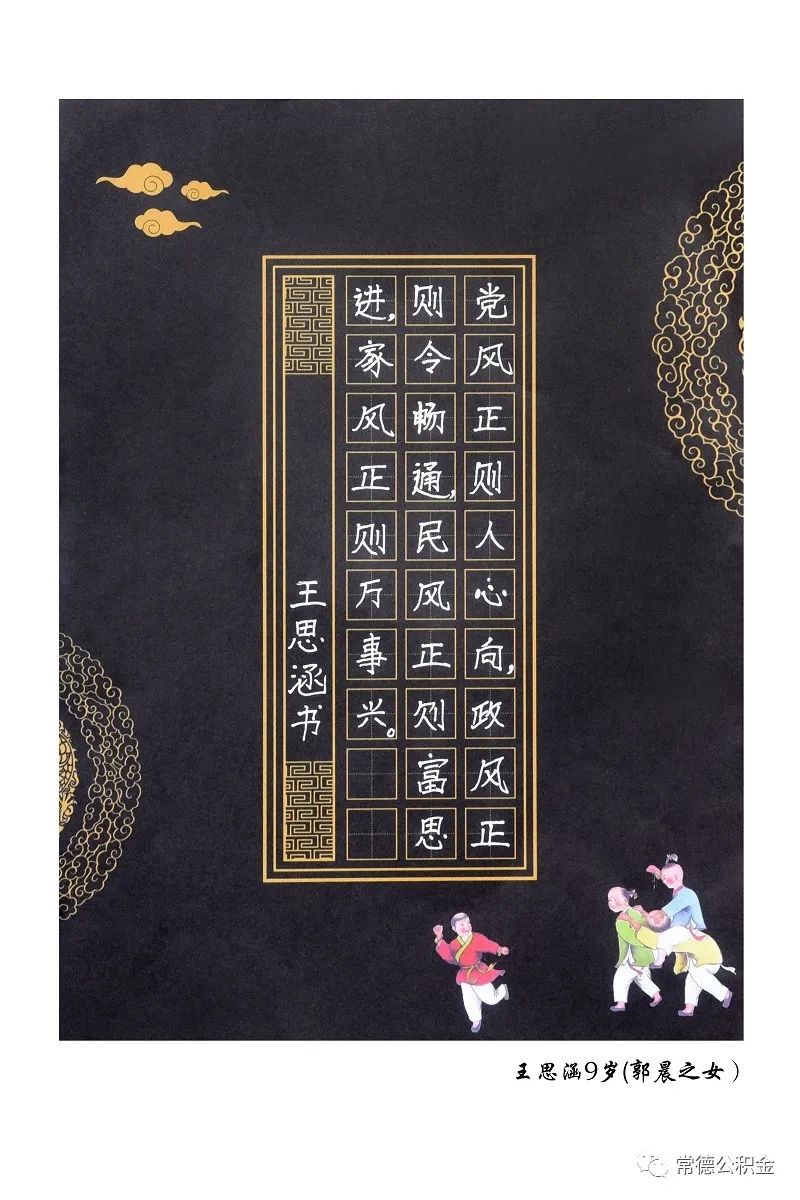 党风正则人心向,政风正
则令畅通,民风正则富思
进,家风正则万事兴。
王思涵书
王思涵9岁(郭晨之女)
常德公积金